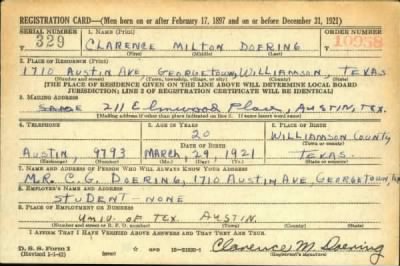 REGISTRATION CARD—(Men born on or after February 17, 1897 and on or before December 31, 1921)
SERIAL NUMBER
1. NAME (Print)
ORDER NUMBER
T 329
CLARENCE MILTON DOERING
10958
2. PLACE OF RESIDENCE (Print)
1710 AUSTIN AVE. GEORGETOWN, WILLIAMSON, TEXAS
(Number and street) (Town, township, village, or city) (County) (State)
[THE PLACE OF RESIDENCE GIVEN ON THE LINE ABOVE WILL DETERMINE LOCAL BOARD
JURISDICTION; LINE 2 OF REGISTRATION CERTIFICATE WILL BE IDENTICAL]
3. MAILING ADDRESS
SAME 211 Elmwood Place, AUSTIN, TEX.
[Mailing address if other than place indicated on line 2. If same insert word same]
4. TELEPHONE
5. AGE IN YEARS
6. PLACE OF BIRTH
20
WILLIAMSON COUNTY
DATE OF BIRTH
AUSTIN, 9793
MARCH, 29, 1921
TEXAS.
(Exchange) (Number)
(Mo.) (Day) (Yr.)
(State or country)
7. NAME AND ADDRESS OF PERSON WHO WILL ALWAYS KNOW YOUR ADDRESS
MR. C. G. DOERING, 1710 AUSTIN AVE, GEORGETOWN, TEX
8. EMPLOYER'S NAME AND ADDRESS
STUDENT NONE
9. PLACE OF EMPLOYMENT OR BUSINESS
UNIV. OF TEX. AUSTIN.
(Number and street or R. F. D. number) (Town) (County) (State)
I AFFIRM THAT I HAVE VERIFIED ABOVE ANSWERS AND THAT THEY ARE TRUE.
D. S. S. Form 1
(Revised 1-1-42)
GPO
Clarence M. Doering
(Registrant's signature)